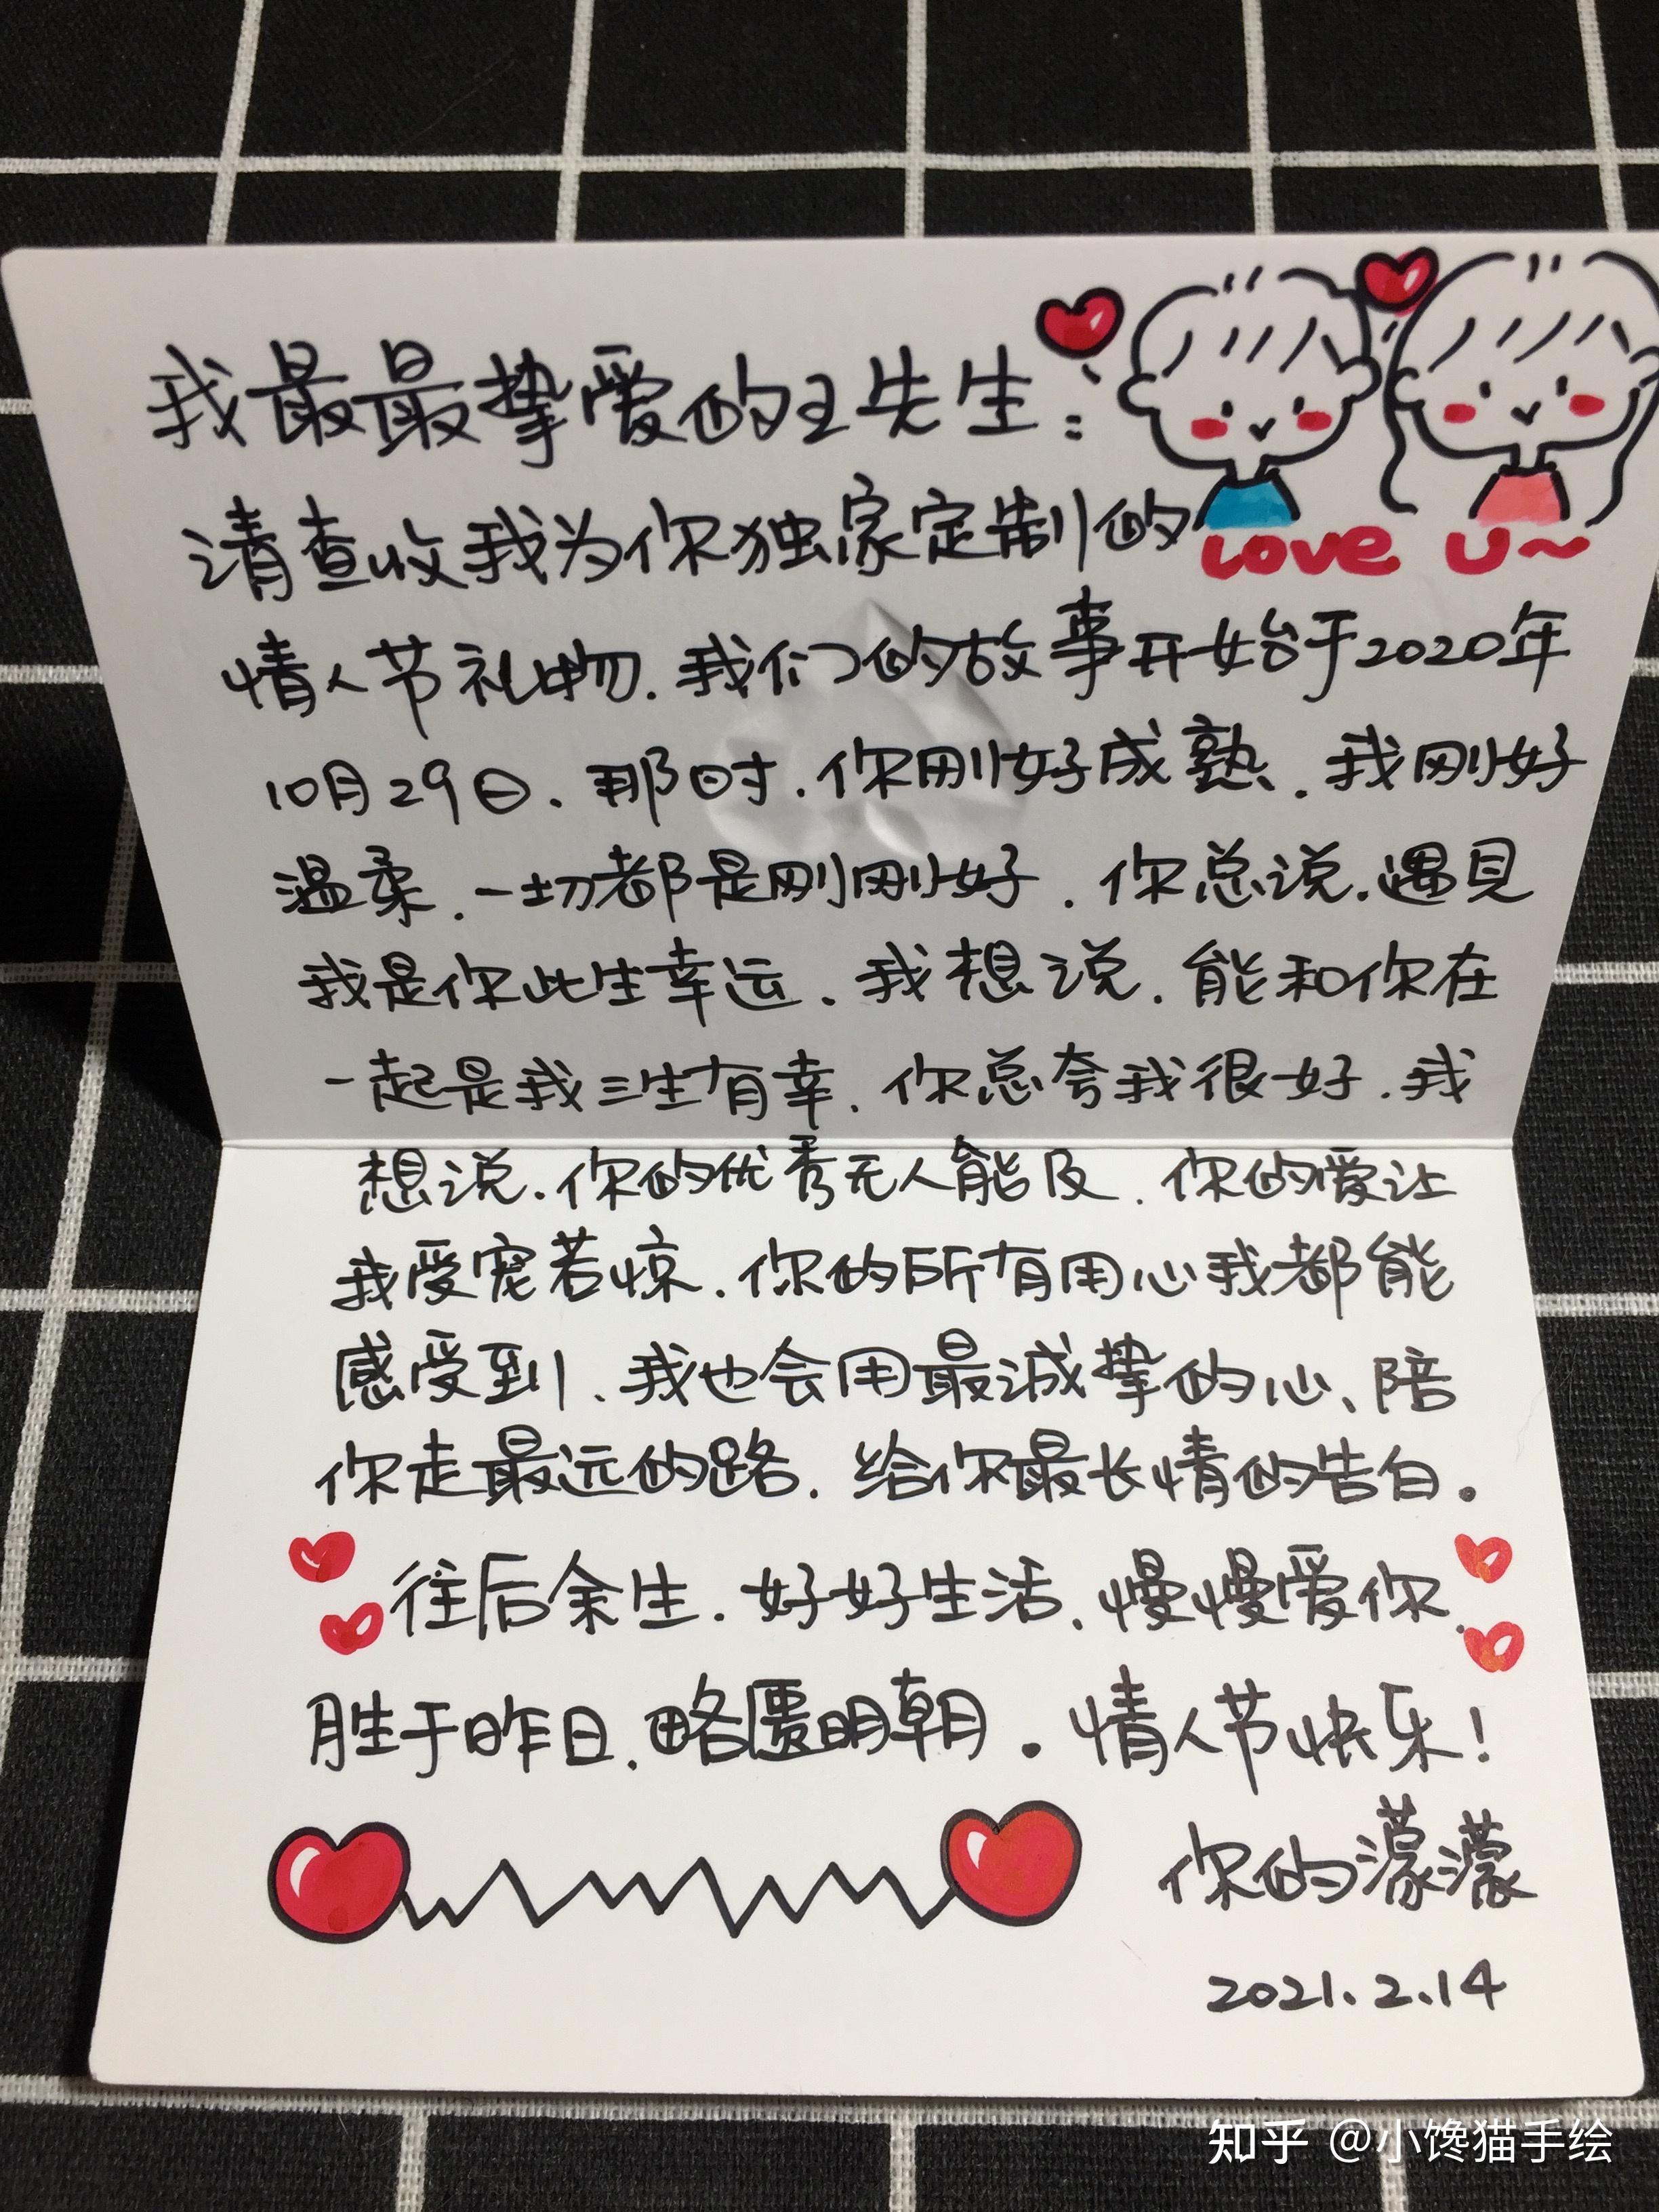 我最最挚爱的王先生:
请查收我为你独家定制的
Love U~
情人节礼物.我们的故事开始于2020年
10月29日.那时.你刚好成熟.我刚好
温柔.一切都是刚刚好.你总说.遇见
我是你此生幸运.我想说.能和你在
一起是我三生有幸.你总夸我很好.我
想说.你的优秀无人能及.你的爱让
我受宠若惊.你的所有用心我都能
感受到、我也会用最诚挚的心、陪
你走最远的路.给你最长情的告白。
往后余生.好好生活.慢慢爱你.
胜于昨日.略匮明朝。情人节快乐!
你的濛濛
2021.2.14
知乎 @小馋猫手绘